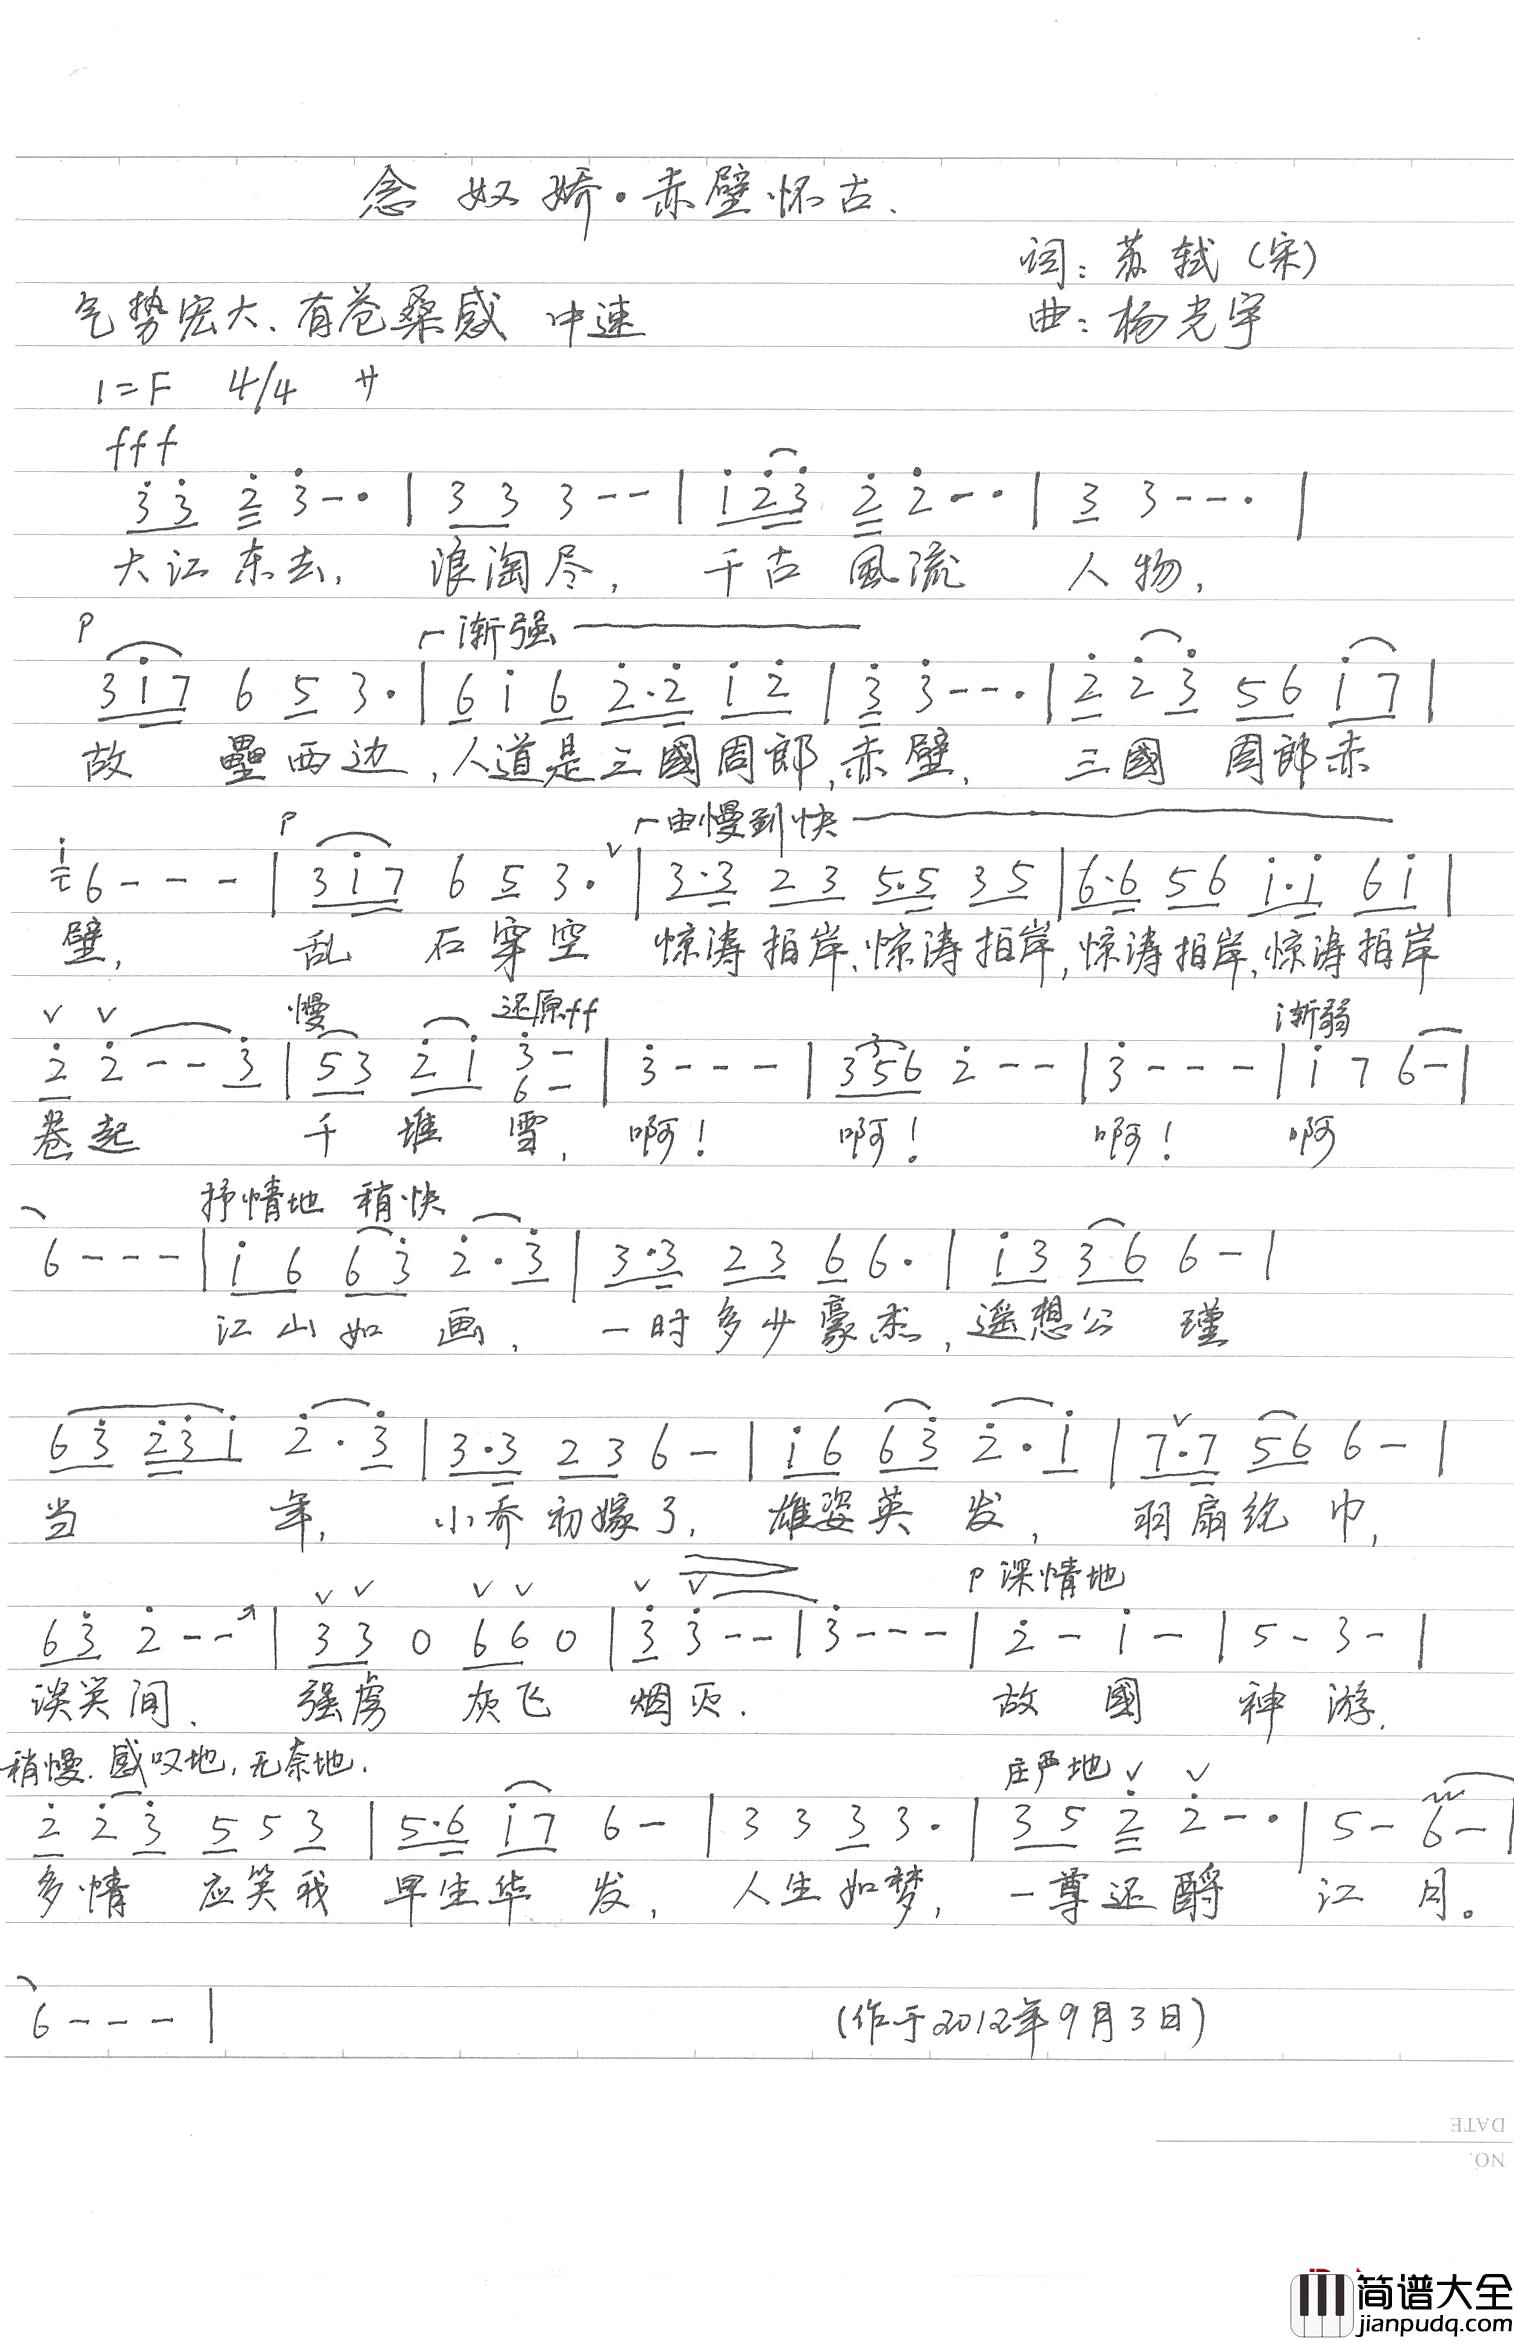 念奴娇·赤壁怀古.
词：苏轼（宋）
气势宏大、有苍桑感 中速
曲：杨光宇
1=F 4/4 サ
fff
3̇ 3̇ 2̇ 3̇--· | 3 3 3-- | i 2̇ 3̇ 2̇ 2̇-· | 3 3---· |
大江东去，浪淘尽，千古風流 人物，
p 渐强
3 i 7 6 5 3· | 6 i 6 2̇·2̇ i 2̇ | 3̇ 3̇---· | 2̇ 2̇ 3̇ 5 6 i 7 |
故 壘西边，人道是三國周郎，赤壁， 三國 周郎赤
p 由慢到快
i 6--- | 3 i 7 6 5 3· | 3·3 2 3 5·5 3 5 | 6·6 5 6 i·i 6 i |
壁， 乱 石穿空 惊涛拍岸、惊涛拍岸，惊涛拍岸，惊涛拍岸
慢 还原ff 渐弱
2̇ 2̇--3̇ | 5 3 2̇ i 3̇- 6- | 3̇--- | 3 5 6 2̇-- | 3̇--- | i 7 6- |
卷起 千堆雪，啊！ 啊！ 啊！ 啊
抒情地 稍快
6--- | i 6 6 3̇ 2̇·3̇ | 3·3 2 3 6 6· | i 3 3 6 6- |
江山如画，一时多少豪杰，遥想公 瑾
6 3̇ 2̇ 3̇ i 2̇·3̇ | 3·3 2 3 6- | i 6 6 3̇ 2̇·i | 7·7 5 6 6- |
当 年， 小乔初嫁了，雄姿英 发， 羽扇纶 巾，
p 深情地
6 3̇ 2̇-- | 3 3 0 6 6 0 | 3̇ 3̇-- | 3̇--- | 2̇-i- | 5-3- |
谈笑间、 强虏 灰飞 烟灭. 故 國 神 游，
稍慢. 感叹地，无奈地. 庄严地
2̇ 2̇ 3̇ 5 5 3 | 5·6 i 7 6- | 3 3 3 3· | 3 5 2̇ 2̇-· | 5-6- |
多情 应笑我 早生华 发， 人生如梦，一尊还酹 江 月。
6--- |
（作于2012年9月3日）
DATE
NO.
简谱大全
jianpudq.com